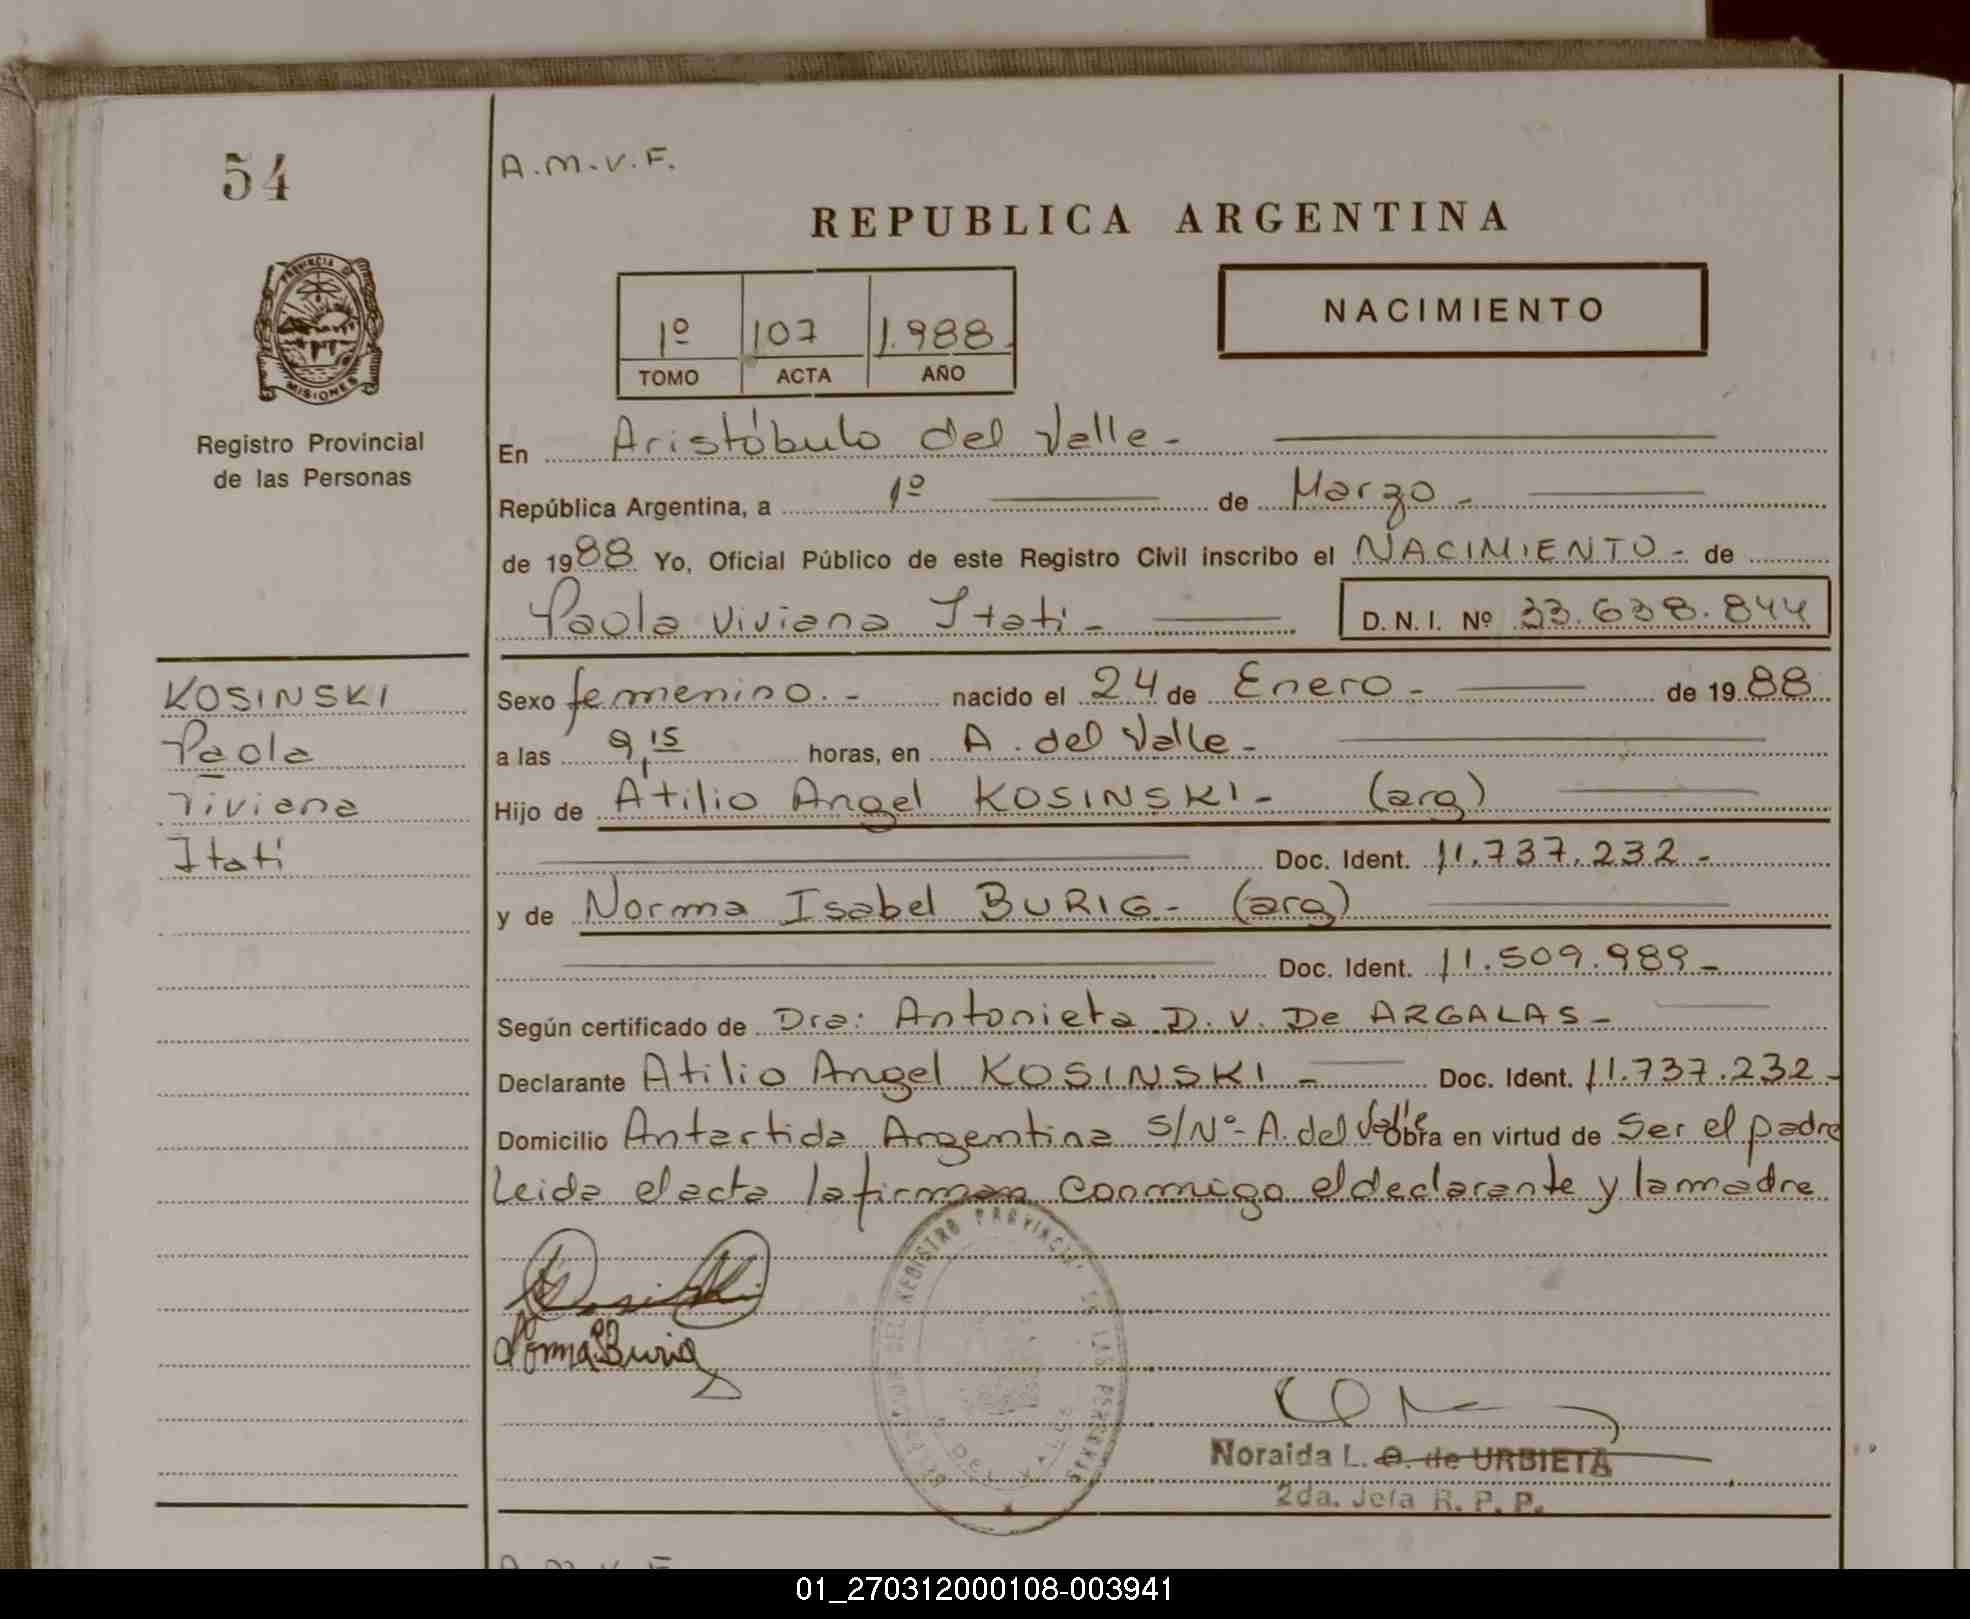 54
A.M.V.F.
REPUBLICA ARGENTINA
PROVINCIA DE
MISIONES
Registro Provincial
de las Personas
1º 107 1.988.
TOMO ACTA AÑO
NACIMIENTO
En Aristóbulo del Valle-
República Argentina, a 1º de Marzo -
de 1988 Yo, Oficial Público de este Registro Civil inscribo el NACIMIENTO- de
Paola Viviana Itatí - D. N. I. Nº 33.638.844
KOSINSKI
Paola
Viviana
Itatí
Sexo femenino.- nacido el 24 de Enero - de 1988
a las 9,15 horas, en A. del Valle-
Hijo de Atilio Angel KOSINSKI- (arg)
Doc. Ident. 11.737.232 -
y de Norma Isabel BURIG- (arg)
Doc. Ident. 11.509.989-
Según certificado de Dra: Antonieta D. V. De ARGALAS-
Declarante Atilio Angel KOSINSKI - Doc. Ident. 11.737.232-
Domicilio Antartida Argentina S/Nº- A. del Valle Obra en virtud de Ser el padre
Leida el acta la firman conmigo el declarante y la madre
Kosinski
Norma Burig
REGISTRO PROVINCIAL DE LAS PERSONAS
Noraida L. O. de URBIETA
2da. Jefa R. P. P.
A.M.V.F.
01_270312000108-003941